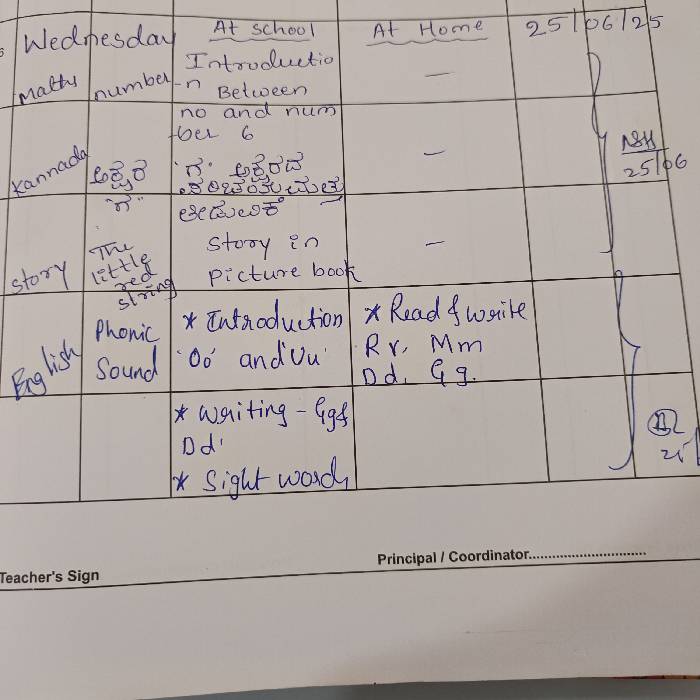 Wednesday At school At Home 25/06/25
Maths number Introductio
-n Between —
no and num
ber 6
Kannada ಅಕ್ಷರ "ಗ" ಅಕ್ಷರದ —
"ಗ" ಪರಿಚಯ ಮತ್ತು
ತೀಡುವಿಕೆ
Story The little red string Story in —
picture book
25/06
English Phonic Sound * Introduction * Read & write
'Oo' and 'Uu' Rr, Mm
Dd, Gg.
* Writing - Gg &
Dd'
* Sight words
Teacher's Sign Principal / Coordinator..............................